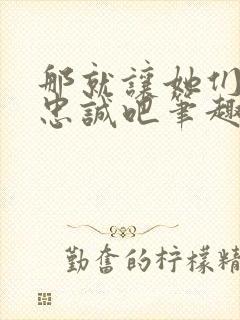 那就讓她们
忠誠吧筆趣
勤奮的柠檬精